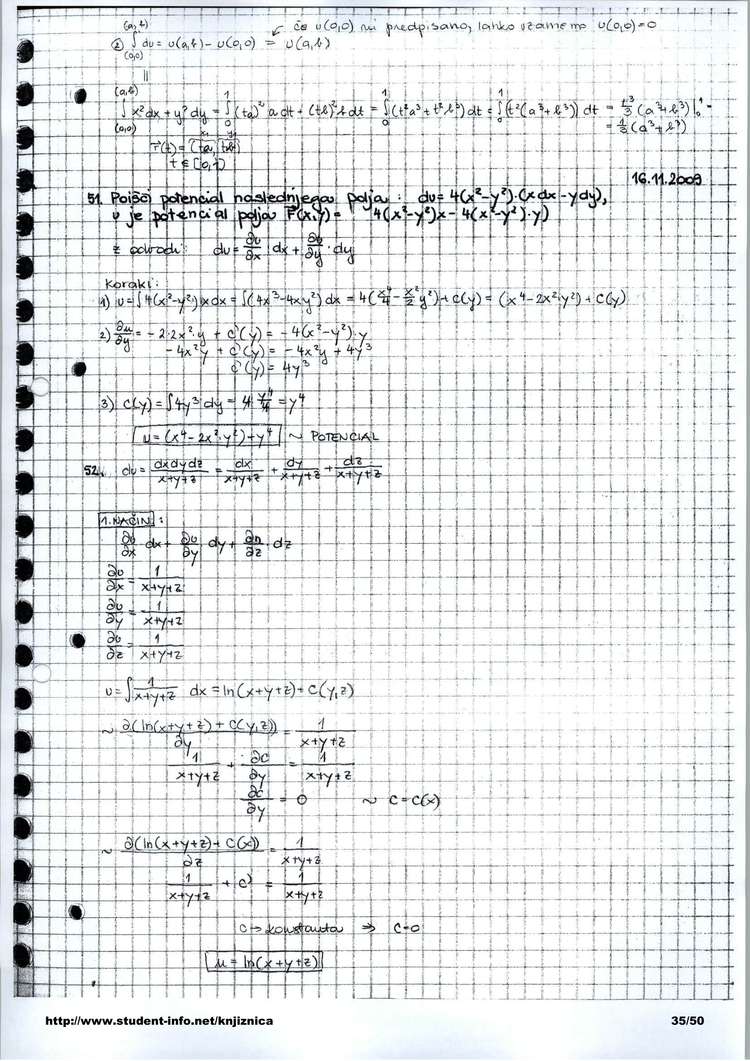 (a,b)
② ∫ du = u(a,b) - u(0,0) = u(a,b) ← če u(0,0) ni predpisano, lahko vzamemo u(0,0)=0
(0,0)
||
(a,b)
∫ x²dx + y²dy = ∫₀¹ (ta)² a dt + (tb)² b dt = ∫₀¹ (t²a³ + t²b³) dt = ∫₀¹ (t²(a³+b³)) dt = t³/3 (a³+b³)|₀¹ =
(0,0)
= 1/3 (a³+b³)
r(t) = (ta, tb)
t ∈ [0,1]
16.11.2009
51. Poišči potencial naslednjega polja: du = 4(x²-y²)·(x dx - y dy),
u je potencial polja F(x,y) = 4(x²-y²)x - 4(x²-y²)·y)
z odvodi: du = ∂u/∂x · dx + ∂u/∂y · dy
Koraki:
1) u = ∫4(x²-y²)x dx = ∫(4x³-4xy²) dx = 4(x⁴/4 - x²/2 y²) + C(y) = (x⁴-2x²y²) + C(y)
2) ∂u/∂y = -2·2x²·y + C'(y) = -4(x²-y²)·y
-4x²y + C'(y) = -4x²y + 4y³
C'(y) = 4y³
3) C(y) = ∫4y³ dy = 4·y⁴/4 = y⁴
u = (x⁴-2x²·y²)+y⁴ ~ POTENCIAL
52. du = dxdydz/x+y+z = dx/x+y+z + dy/x+y+z + dz/x+y+z
1. NAČIN:
∂u/∂x · dx + ∂u/∂y · dy + ∂u/∂z · dz
∂u/∂x = 1/x+y+z
∂u/∂y = 1/x+y+z
∂u/∂z = 1/x+y+z
u = ∫ 1/x+y+z dx = ln(x+y+z) + C(y,z)
~ ∂(ln(x+y+z) + C(y,z))/∂y = 1/x+y+z
1/x+y+z + ∂C/∂y = 1/x+y+z
∂C/∂y = 0 ~ C = C(x)
~ ∂(ln(x+y+z) + C(x))/∂z = 1/x+y+z
1/x+y+z + C' = 1/x+y+z
C → konstanta ⇒ C=0
u = ln(x+y+z)
http://www.student-info.net/knjiznica 35/50